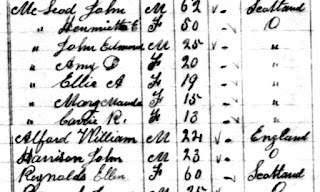 McLeod John M 62 Scotland
" Henrietta E F 50 O
" John Edmund M 25 "
" Amy D F 20 "
" Ellie A F 19 "
" Mary Maude F 15 "
" Carrie R. F 13 "
Alford William M 22 England
Harrison John M 23 O
Reynolds Ellen F 60 Scotland